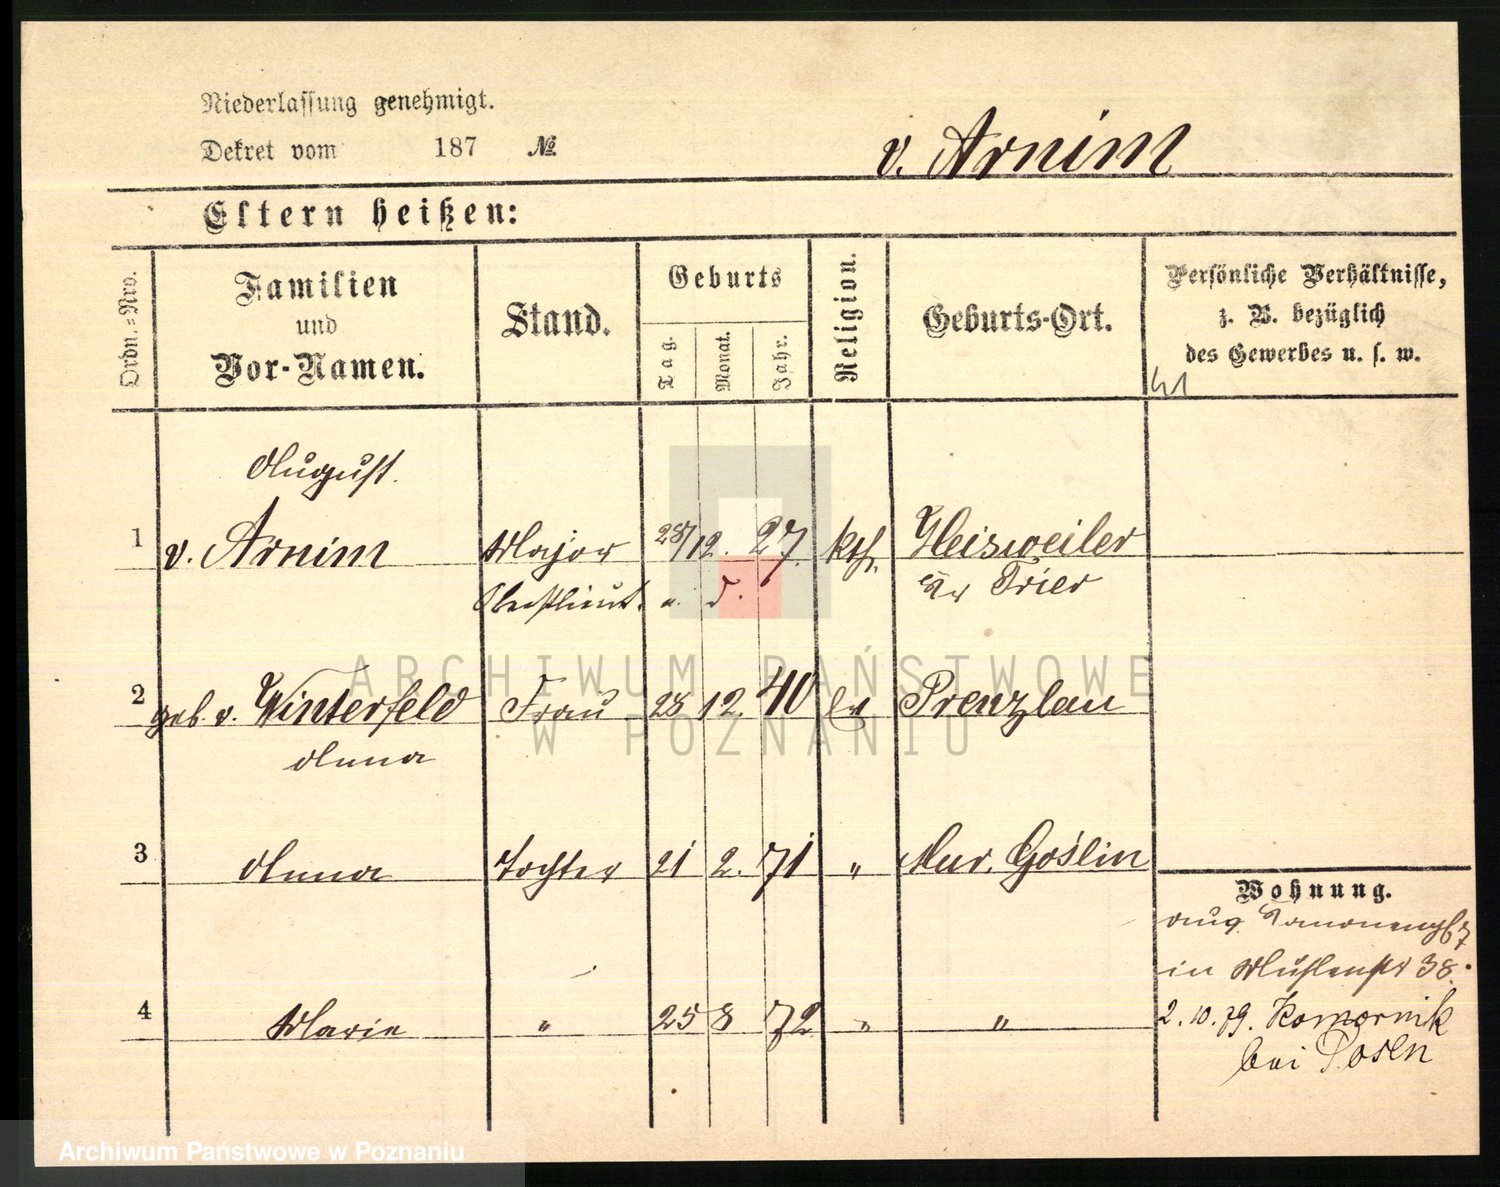 Niederlassung genehmigt.
Dekret vom 187 №
v. Arnim
Eltern heißen:
Ordn.=Nro.
Familien
und
Vor-Namen.
Stand.
Geburts
Tag.
Monat.
Jahr.
Religion.
Geburts-Ort.
Persönliche Verhältnisse,
z. B. bezüglich
des Gewerbes u. s. w.
August.
1 v. Arnim Major 28/12. 27. kth. Heisweiler
Oberstlieut. a. D. Kr Trier
2 geb. v. Winterfeld Frau 28 12. 40 ev Prenzlau
Anna
3 Anna Tochter 21 2. 71 " Mur. Goślin
Wohnung.
in Mühlenstr 38.
4 Marie " 25 8 72 " "
2. 10. 79. Komornik
bei Posen
ARCHIWUM PAŃSTWOWE
W POZNANIU
Archiwum Państwowe w Poznaniu